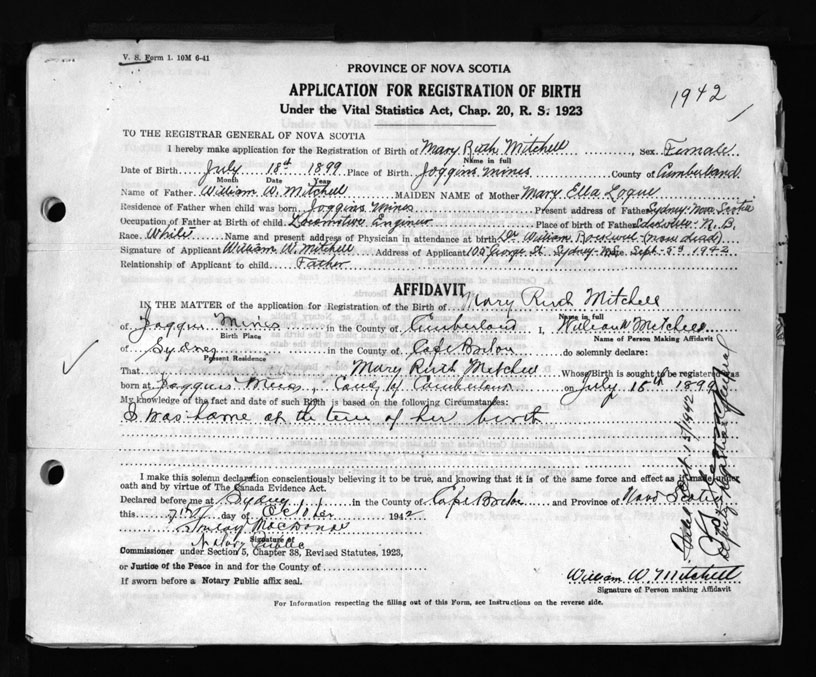 V. S. Form 1. 10M 6-41
PROVINCE OF NOVA SCOTIA
APPLICATION FOR REGISTRATION OF BIRTH
1942
Under the Vital Statistics Act, Chap. 20, R. S. 1923
TO THE REGISTRAR GENERAL OF NOVA SCOTIA
I hereby make application for the Registration of Birth of Mary Ruth Mitchell Sex Female
Name in full
Date of Birth July 18th 1899 Place of Birth Joggins mines County of Cumberland
Month Date Year
Name of Father William W. Mitchell MAIDEN NAME of Mother Mary Ella Logue
Residence of Father when child was born Joggins Mines Present address of Father Sydney Nova Scotia
Occupation of Father at Birth of child Locomotive Engineer Place of birth of Father N. B.
Race White Name and present address of Physician in attendance at birth Dr William (now dead)
Signature of Applicant William W. Mitchell Address of Applicant 105 George St Sydney N.S. Date Sept. 5th 1942
Relationship of Applicant to child Father
AFFIDAVIT
IN THE MATTER of the application for Registration of the Birth of Mary Ruth Mitchell
Name in full
of Joggins Mines in the County of Cumberland I, William W Mitchell
Birth Place Name of Person Making Affidavit
of Sydney in the County of Cape Breton do solemnly declare:
Present Residence
That Mary Ruth Mitchell Whose Birth is sought to be registered was
born at Joggins Mines County of Cumberland on July 18th 1899
My knowledge of the fact and date of such Birth is based on the following Circumstances:
I was home at the time of her birth
I make this solemn declaration conscientiously believing it to be true, and knowing that it is of the same force and effect as if made under
oath and by virtue of The Canada Evidence Act.
Declared before me at Sydney in the County of Cape Breton and Province of Nova Scotia
this 7th day of October 1942
MacDonald
Signature of
Notary Public
Commissioner under Section 5, Chapter 38, Revised Statutes, 1923,
or Justice of the Peace in and for the County of
If sworn before a Notary Public affix seal.
William W. Mitchell
Signature of Person making Affidavit
For Information respecting the filling out of this Form, see Instructions on the reverse side.
Oct. 15/1942
Deputy Registrar General